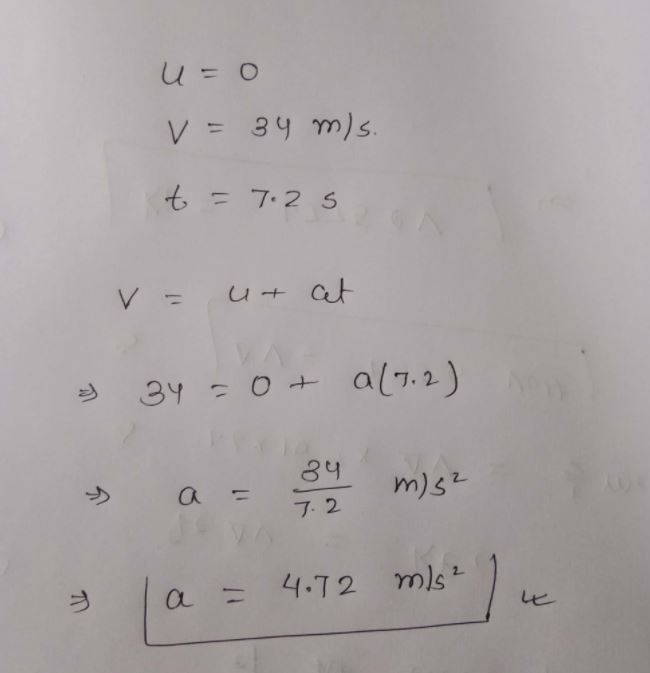 u = 0
v = 34 m/s.
t = 7.2 s
v = u + at
⇒ 34 = 0 + a(7.2)
⇒ a = 34/7.2 m/s²
⇒ a = 4.72 m/s²